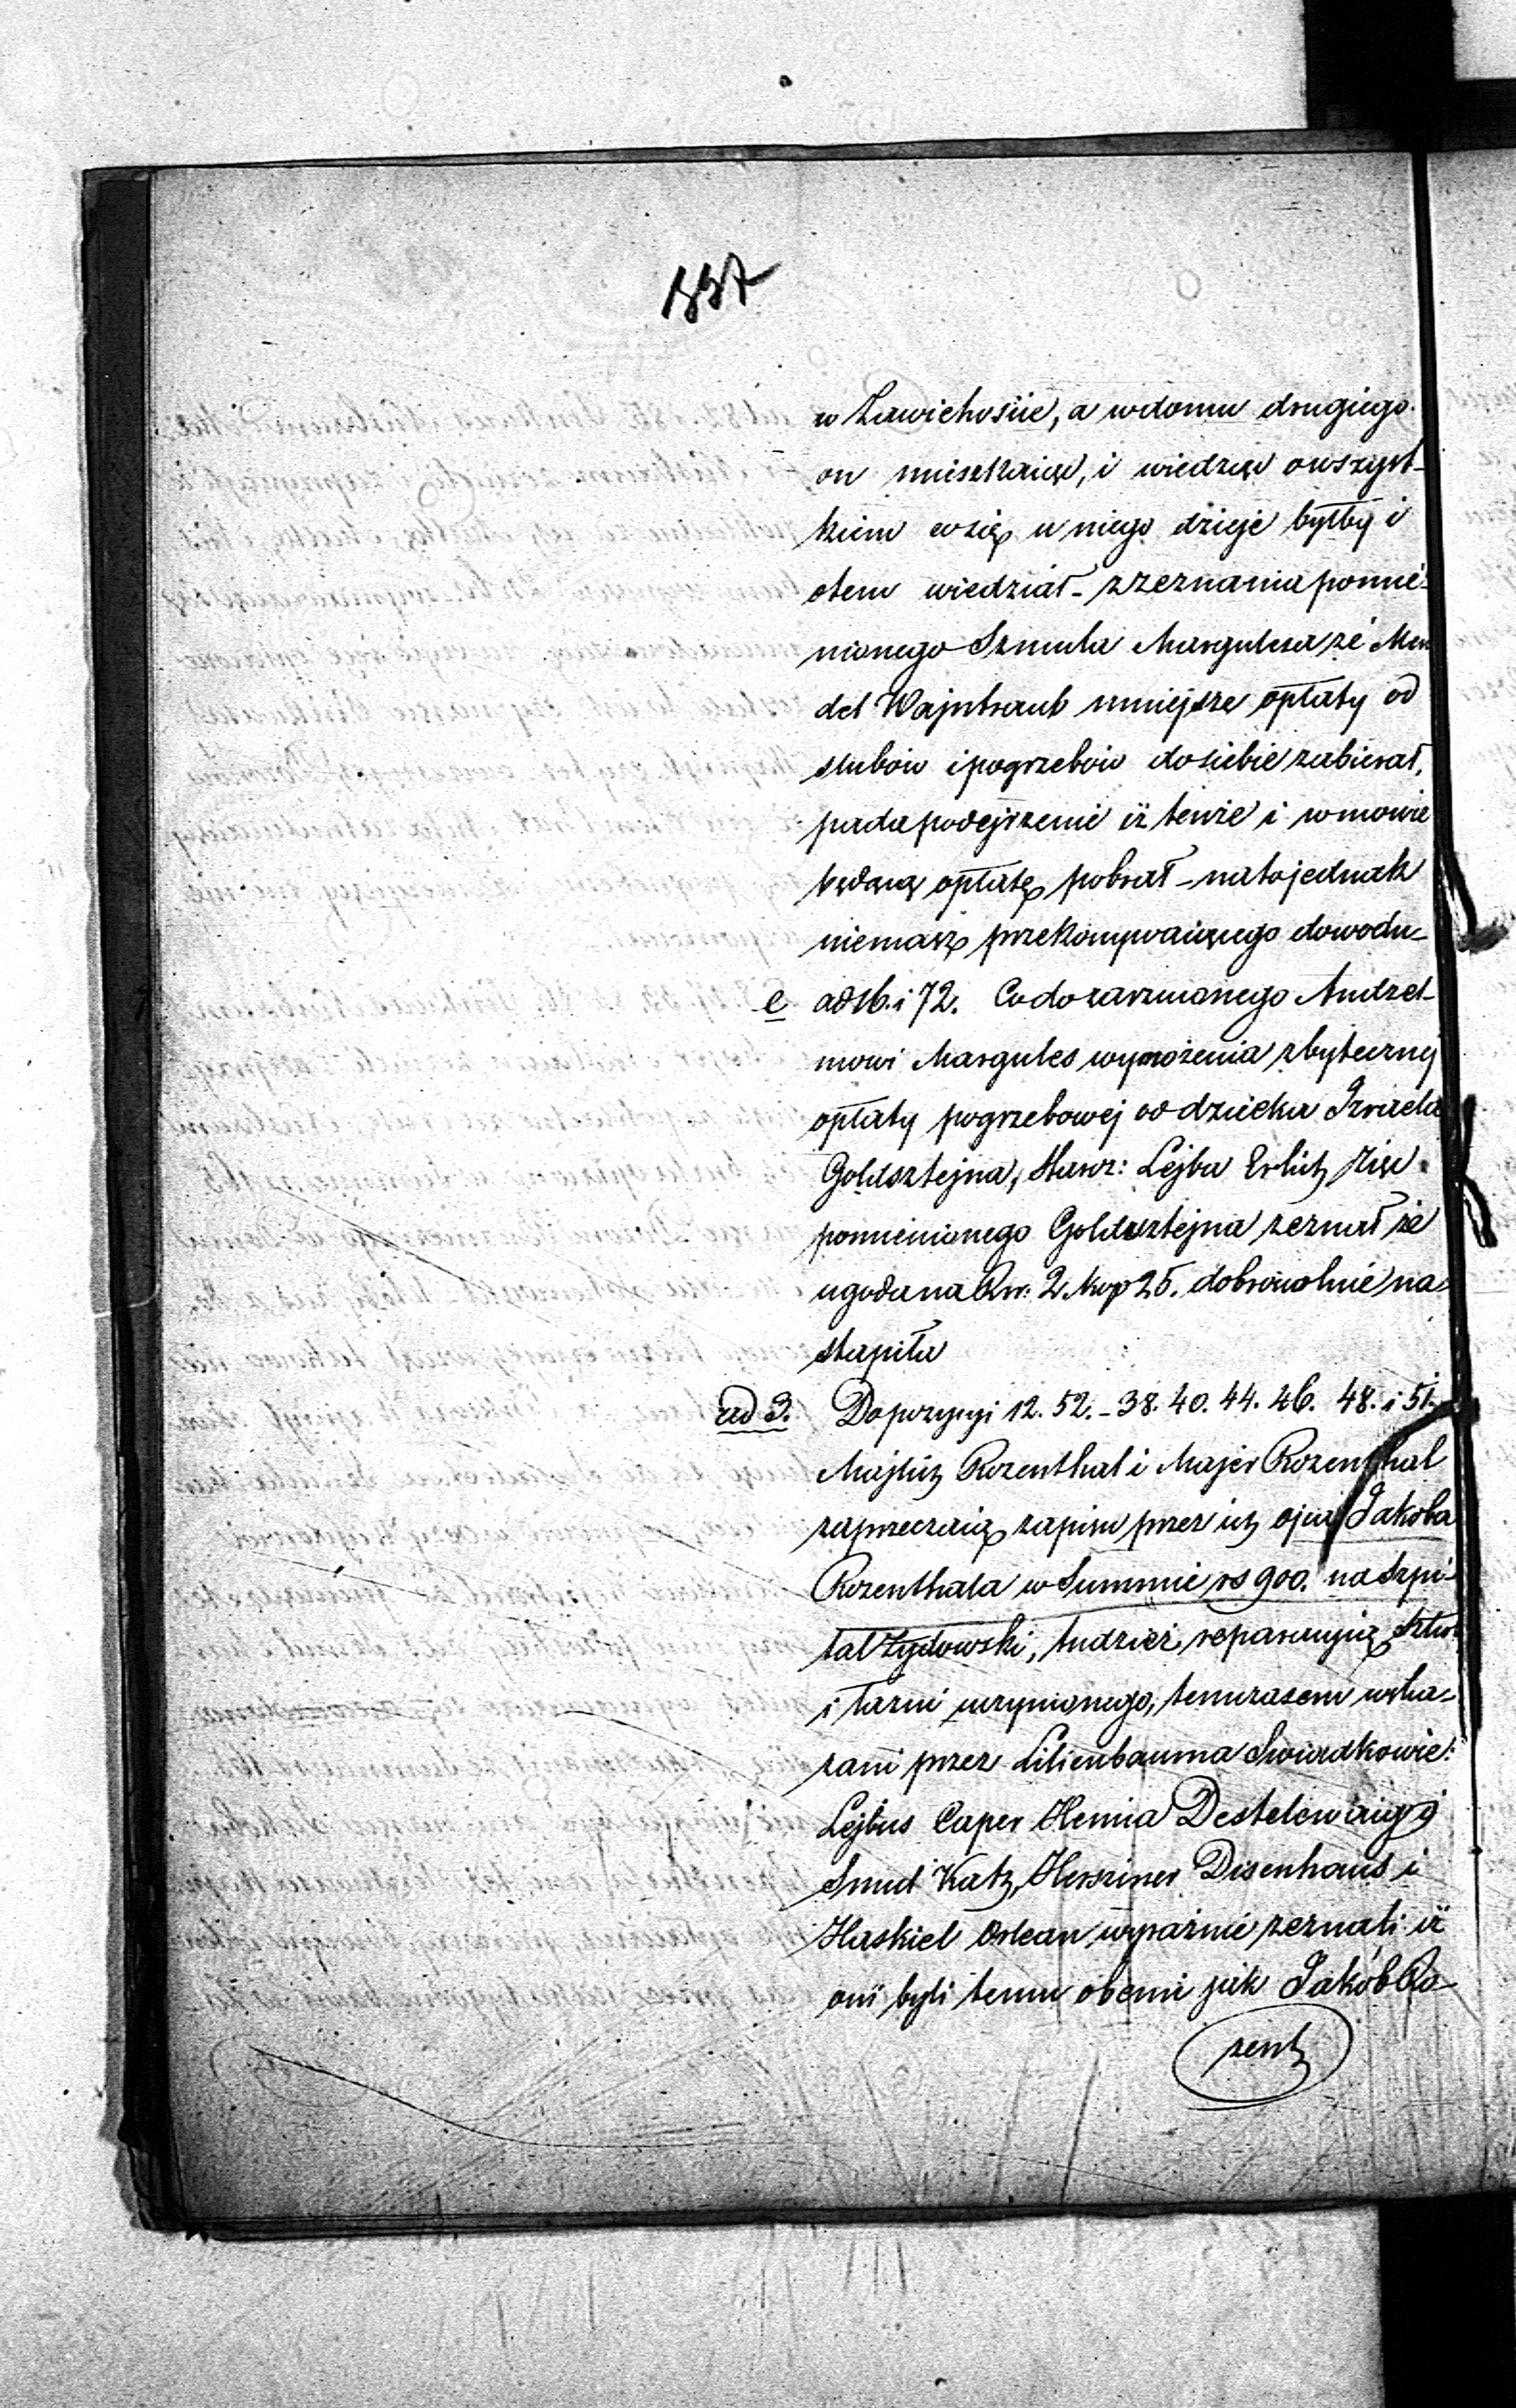 337
w Zawichoście, a w domu drugiego
on mieszkaiąc, i wiedząc o wszyst-
kiem co się u niego dzieje byłby i
o tem wiedział – z zeznania pomie-
nionego Szmula Margulesa że Men
del Wajntraub mniejsze opłaty od
slubow i pogrzebow do siebie zabierał,
pada podejrzenie iż tenże i w mowie
będącą opłatę pobrał – na to jednak
niemasz przekonywaiącego dowodu –
e ad 16. i 72. Co do zarzucanego Andzel-
mowi Margules wymożenia zbytecznej
opłaty pogrzebowej od dziecka Izraela
Goldsztejna, Starz: Lejba Erlich Zięć
pomienionego Goldsztejna zeznał że
ugoda na Rs: 2 kop 25. dobrowolnie na-
stąpiła
ad 3. Do pozycyi 12. 52. – 38. 40. 44. 46. 48. i 51.
Majlich Rozenthal i Majer Rozenthal
zaprzeczaią zapisu przez ich ojca Jakoba
Rozenthala w Summie rs 900. na Szpi-
tal Żydowski, tudzież reparacyią Szkoły
i łaźni uczynionego, temczasem wska-
zani przez Lilienbauma Swiadkowie:
Lejbuś Caper Henna
Smul Katz, Herszmer Disenhaus i
Haskiel Orlean wyraźnie zeznali iż
oni byli temu obecni jak Jakób Ro-
zenth